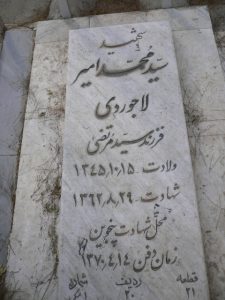 شهید
سید محمد امیر
لاجوردی
فرزند سید مرتضی
ولادت ۱۳۴۵،۱۰،۱۵
شهادت ۱۳۶۲،۸،۲۹
محل شهادت خویین
زمان دفن ۱۳۷۰،۴،۱۴
قطعه ردیف شماره
۲۱ ۲۰